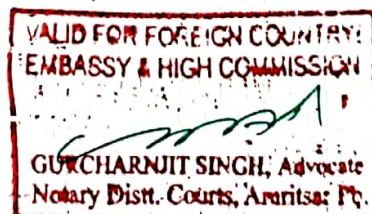 VALID FOR FOREIGN COUNTRY
EMBASSY & HIGH COMMISSION
GURCHARNJIT SINGH, Advocate
Notary Distt. Courts, Amritsar Pb.